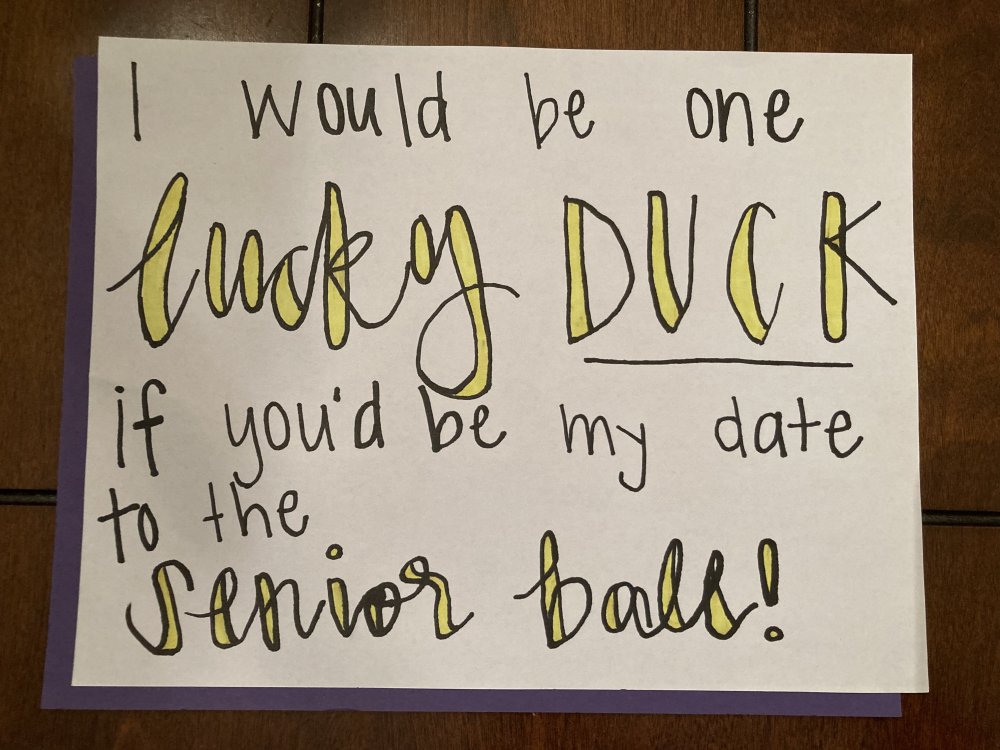 I would be one
lucky DUCK
if you'd be my date
to the
senior ball!